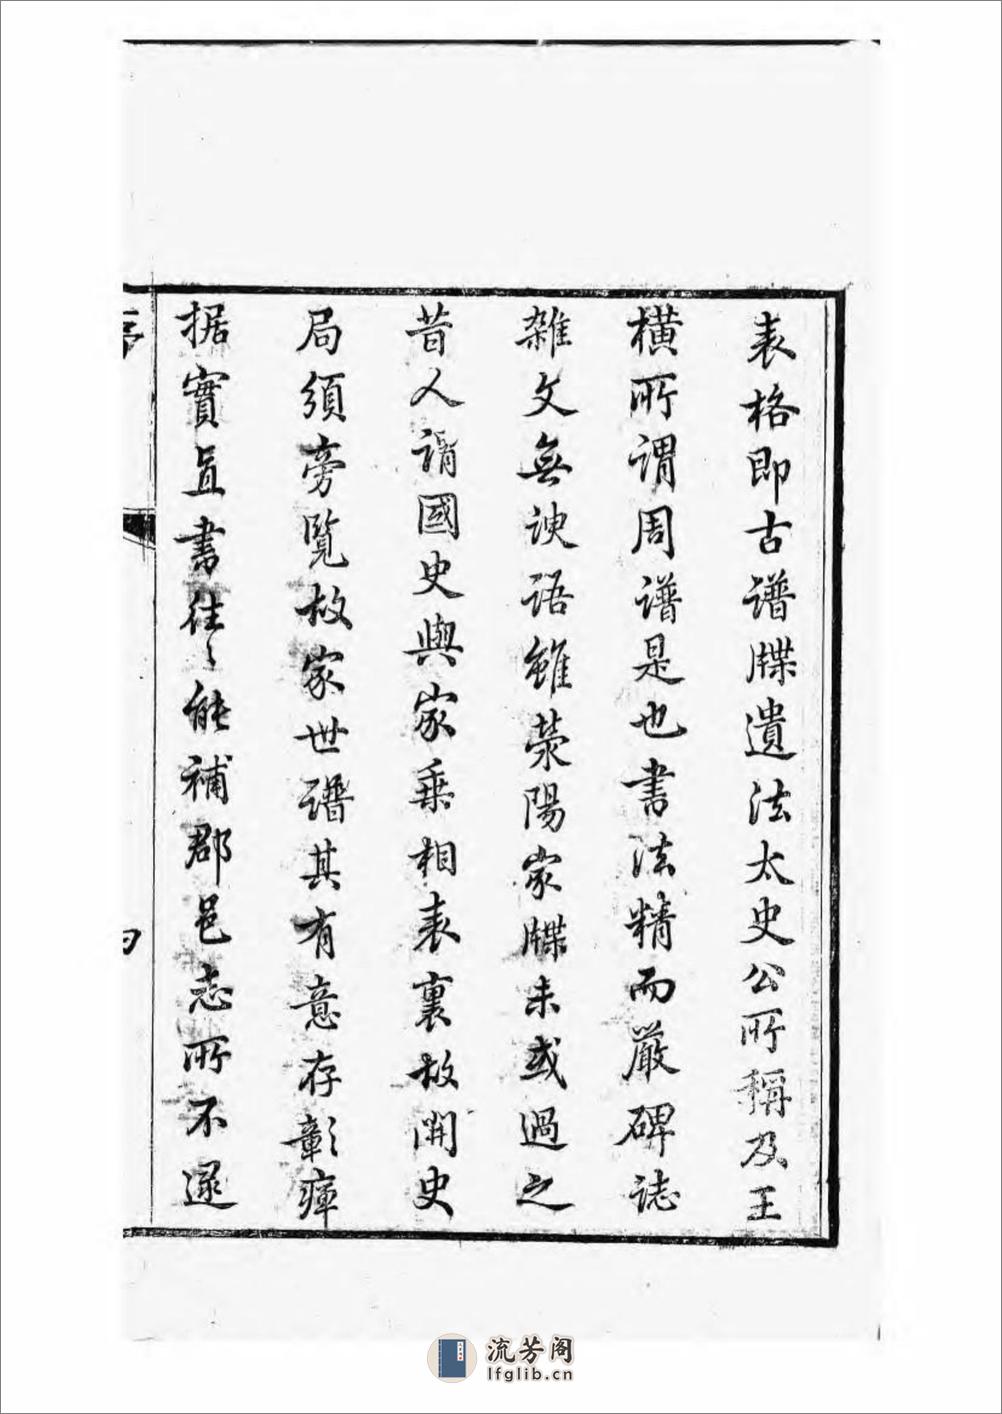 表格即古譜牒遺法太史公所稱及王
橫所謂周譜是也書法精而嚴碑誌
雜文無諛語雖滎陽家牒未或過之
昔人謂國史與家乗相表裏故開史
局須旁覽故家世譜其有意存彰癉
据實直書往〻能補郡邑志所不逮
序
流芳阁
lfglib.cn